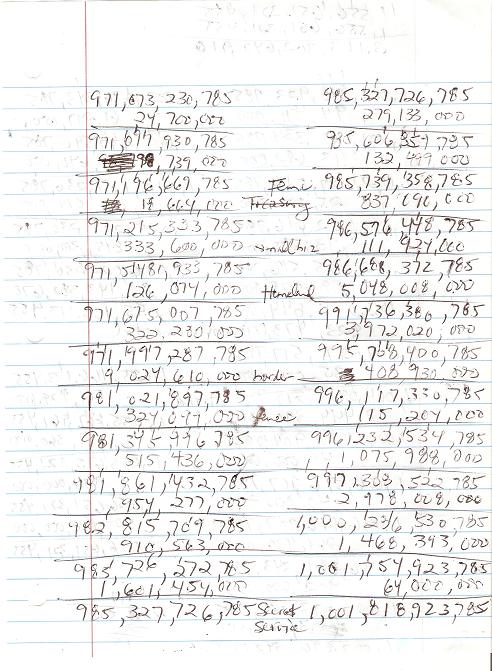 971,073,230,785
24,700,000
971,097,930,785
98,739,000
971,196,669,785
18,664,000
971,215,333,785
333,600,000 small biz
971,548,933,785
126,074,000 Homeland
971,675,007,785
322,280,000
971,997,287,785
9,024,610,000 border
981,021,897,785
324,099,000
981,345,996,785
515,436,000
981,861,432,785
954,277,000
982,815,709,785
910,563,000
983,726,272,785
1,601,454,000
985,327,726,785 Secret
Service
985,327,726,785
279,133,000
985,606,859,785
132,499,000
985,739,358,785
Treasury 837,090,000
986,576,448,785
111,924,000
986,688,372,785
5,048,008,000
991,736,380,785
3,972,020,000
995,708,400,785
408,930,000
996,117,330,785
115,204,000
996,232,534,785
1,075,988,000
997,308,522,785
2,978,008,000
1,000,286,530,785
1,468,393,000
1,001,754,923,785
64,000,000
1,001,818,923,785